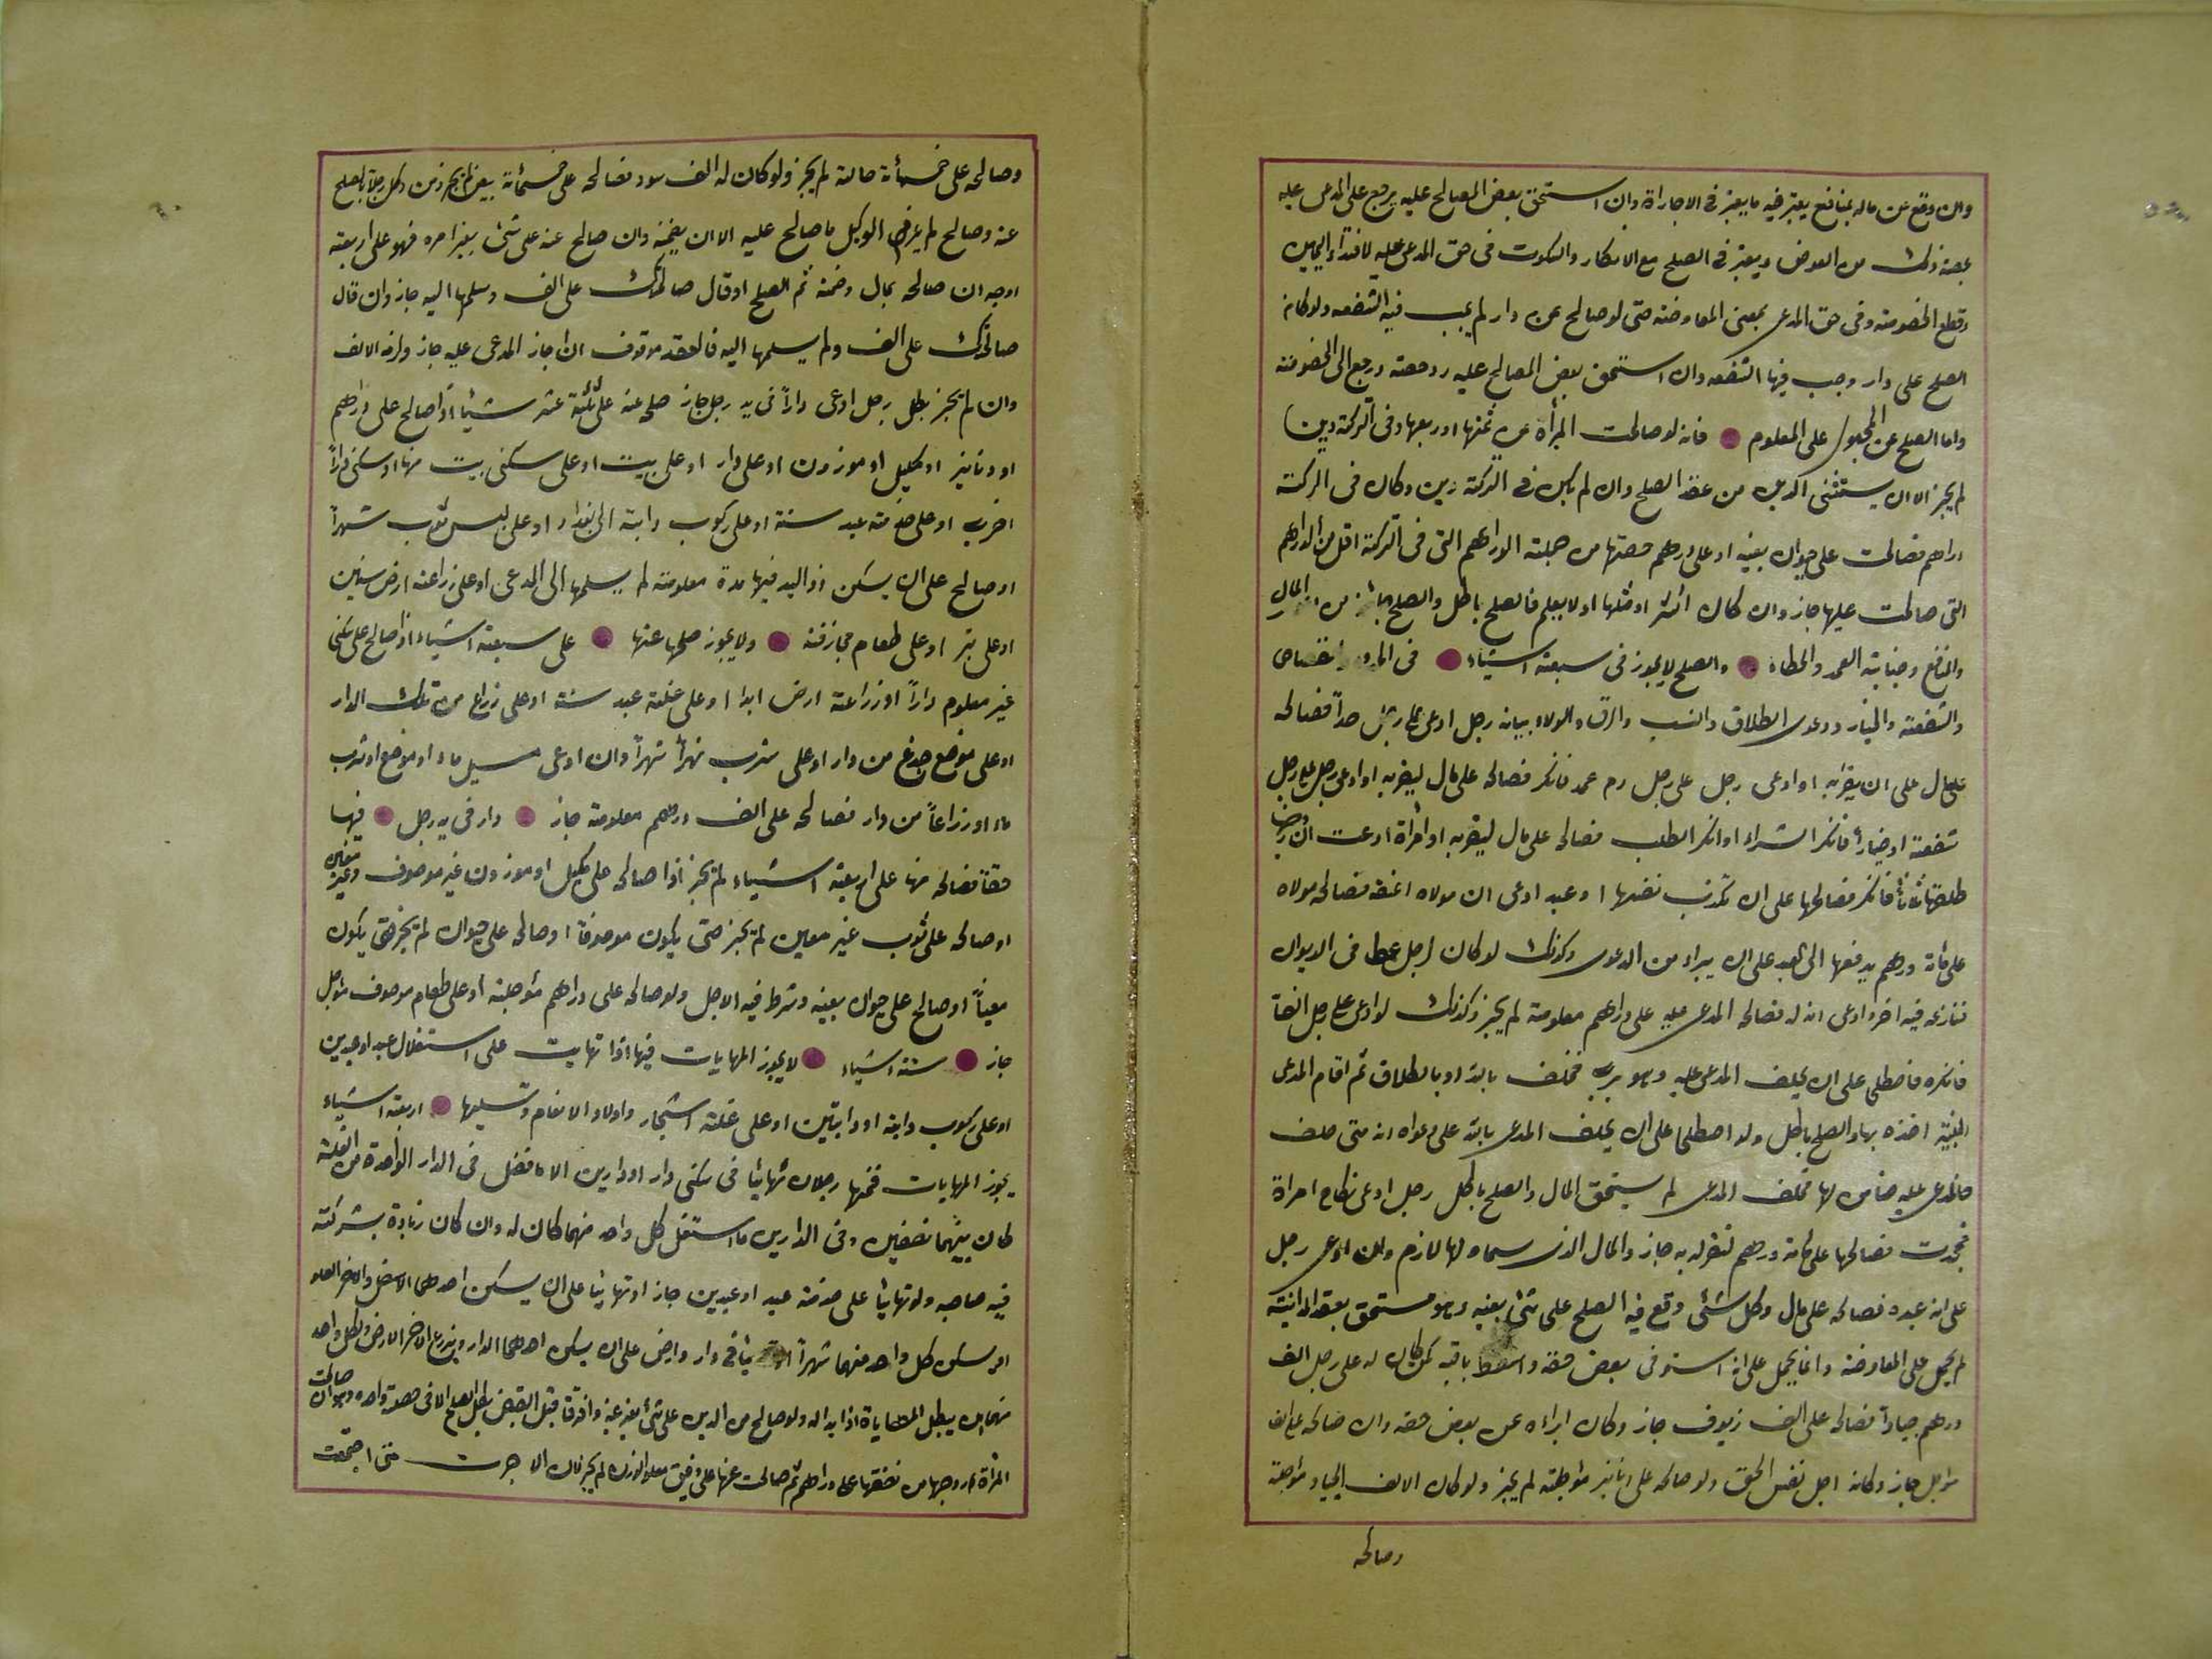 وان وقع عن مال بمنافع يعتبر فيه ما يعتبر فى الاجاراة وان استحق بعض المصالح عليه يرجع على المدعى عليه
بحصة ذلك من العوض ويعتبر فى الصلح مع الانكار والسكوت فى حق المدعى عليه لافتداء اليمين
وقطع الخصومة وفى حق المدعى بمعنى المعاوضة حتى لو صالح عن دار لم يجب فيه الشفعه ولو كان
الصلح على دار وجب فيها الشفعه وان استحق بعض المصالح عليه رد حصته ورجع الى الخصومة
واما الصلح عن المجهول على المعلوم فانه لو صالحت المرأة عن ثمنها او ربعها وفى التركة دين
لم يجز الا ان يستثنى الدين من عقد الصلح وان لم يكن فى التركة دين وكان فى التركة
دراهم فصالحت على حيوان بعينه او على دراهم حصتها من جملة الدراهم التى فى التركة اقل من الدراهم
التى صالحت عليها جاز وان كان اكثر او مثلها او لا يعلم فالصلح باطل والصلح جائز من المال
والمنافع وجناية العمد والخطاء والصلح لا يجوز فى سبعة اشياء فى
والشفعة والخيار ودعوى الطلاق والنسب والرق والولاء بيانه رجل ادعى على رجل حداً فصالحه
على مال على ان يقر به او ادعى رجل على رجل دم عمد فانكر فصالحه على مال ليقر به او ادعى رجل على رجل
شفعة او خياراً فانكر الشراء او انكر الطلب فصالحه على مال ليقر به او امراة ادعت ان زوجها
طلقها ثلثاً فانكر فصالحها على ان تكذب نفسها او عبد ادعى ان مولاه اعتقه فصالحه مولاه
على مائة درهم يدفعها الى العبد على ان يبراء من الدعوى وكذلك لو كان لرجل عطا فى الديوان
فنازعه فيه اخر وادعى انه له فصالحه المدعى عليه على دراهم معلومة لم يجز وكذلك لو ادعى على رجل الفا
فانكره فاصطلحا على ان يحلف المدعى عليه وهو برئ فحلف بالله او بالطلاق ثم اقام المدعى
البينة اخذه بها والصلح باطل ولو اصطلحا على ان يحلف المدعى بالله على دعواه انه متى حلف
فالمدعى عليه ضامن لها فحلف المدعى لم يستحق المال والصلح باطل رجل ادعى نكاح امراة
فجحدت فصالحها على مائة درهم لتقر له به جاز والمال الذى سماه لها لازم وان ادعى رجل
على انه عبده فصالحه على مال وكل شئى وقع فيه الصلح على شئى بعينه وهو مستحق بعقد المداينة
لم يحمل على المعاوضة وانما يحمل على انه استوفى بعض حقه واسقط باقيه كمن كان له على رجل الف
درهم جياداً فصالحه على الف زيوف جاز وكان ابراءه عن بعض حقه وان صالحه على الف
مؤجل جاز وكانه اجل نفس الحق ولو صالحه على دنانير مؤجلة لم يجز ولو كان الالف الجياد مؤجلة
وصالحه
وصالحه على خمسمأئة حالة لم يجز ولو كان له الف سود فصالحه على خمسمائة بيض لم يجز ومن وكل رجلاً بالصلح
عنه وصالح لم يلزم الوكيل ما صالح عليه الا ان يضمنه وان صالح عنه على شئى بغير امره فهو على اربعة
اوجه ان صالحه بمال وضمنه ثم الصلح او قال صالحتك على الف وسلمها اليه جاز وان قال
صالحتك على الف ولم يسلمها اليه فالعقد موقوف ان اجاز المدعى عليه جاز ولزمه الالف
وان لم يجز بطل رجل ادعى داراً فى يد رجل جاز صلحه عنه على ثلثة عشر شيئاً اذا صالح على دراهم
او دنانير او مكيل او موزون او على دار او على بيت او على سكنى بيت منها او سكنى داراً
اخرى او على خدمته عبد سنة او على ركوب دابة الى بغداد او على لبس ثوب شهراً
او صالح على ان يسكن ذو اليد فيها مدة معلومة ثم يسلمها الى المدعى او على زراعة ارض سنين
او على بئر او على طعام مجازفة ولا يجوز صلحها عنها على سبعة اشياء اذا صالح على سكنى
غير معلوم داراً او زراعة ارض ابدا او على غلة عبد سنة او على زراع من تلك الدار
او على موضع جذع من دار او على شرب نهراً شهراً وان ادعى مسيل ماء او موضع او شرب
ماء او زراعاً من دار فصالحه على الف درهم معلومة جاز دار فى يد رجل فيها
حقاً فصالحه منها على اربعة اشياء لم يجز اذا صالحه على مكيل او موزون غير موصوف وغير معين
او صالحه على ثوب غير معين لم يجز حتى يكون موصوفاً او صالحه على حيوان لم يجز حتى يكون
معيناً او صالح على حيوان بعينه وشرط فيه الاجل ولو صالحه على دراهم مؤجلة او على طعام موصوف مؤجل
جاز ستة اشياء لا يجوز المهايات فيها اذا تهايت على استغلال عبد او عبدين
او على ركوب دابة او دابتين او على غلة اشجار واولاد الانعام ونسليها اربعة اشياء
يجوز المهايات فمنها رجلان تهائيا فى سكنى دار او دارين الا ما فضل فى الدار الواحدة من الغلة
كان بينهما نصفين وفى الدارين ما استغل كل واحد منهما كان له وان كان زيادة بشركته
فيه صاحبه ولو تهائيا على خدمة عبد او عبدين جاز او تهائيا على ان يسكن احدهما الاسفل والاخر العلو
او يسكن كل واحد منهما شهراً فى دار وارض على ان يسكن احدهما الدار ويزرع الاخر الارض ولكل واحد
منهما ان يبطل المهاياة اذا بدا له ولو صالح من الدين على شئ بغير عينه وافترقا قبل القبض بطل الصلح الا فى خصلة واحده وهو ان صالحت
المرأة زوجها من نفقتها على دراهم ثم صالحت عنها على دقيق معلوم الوزن لم يجز فان الاجرت متى اجتمعت